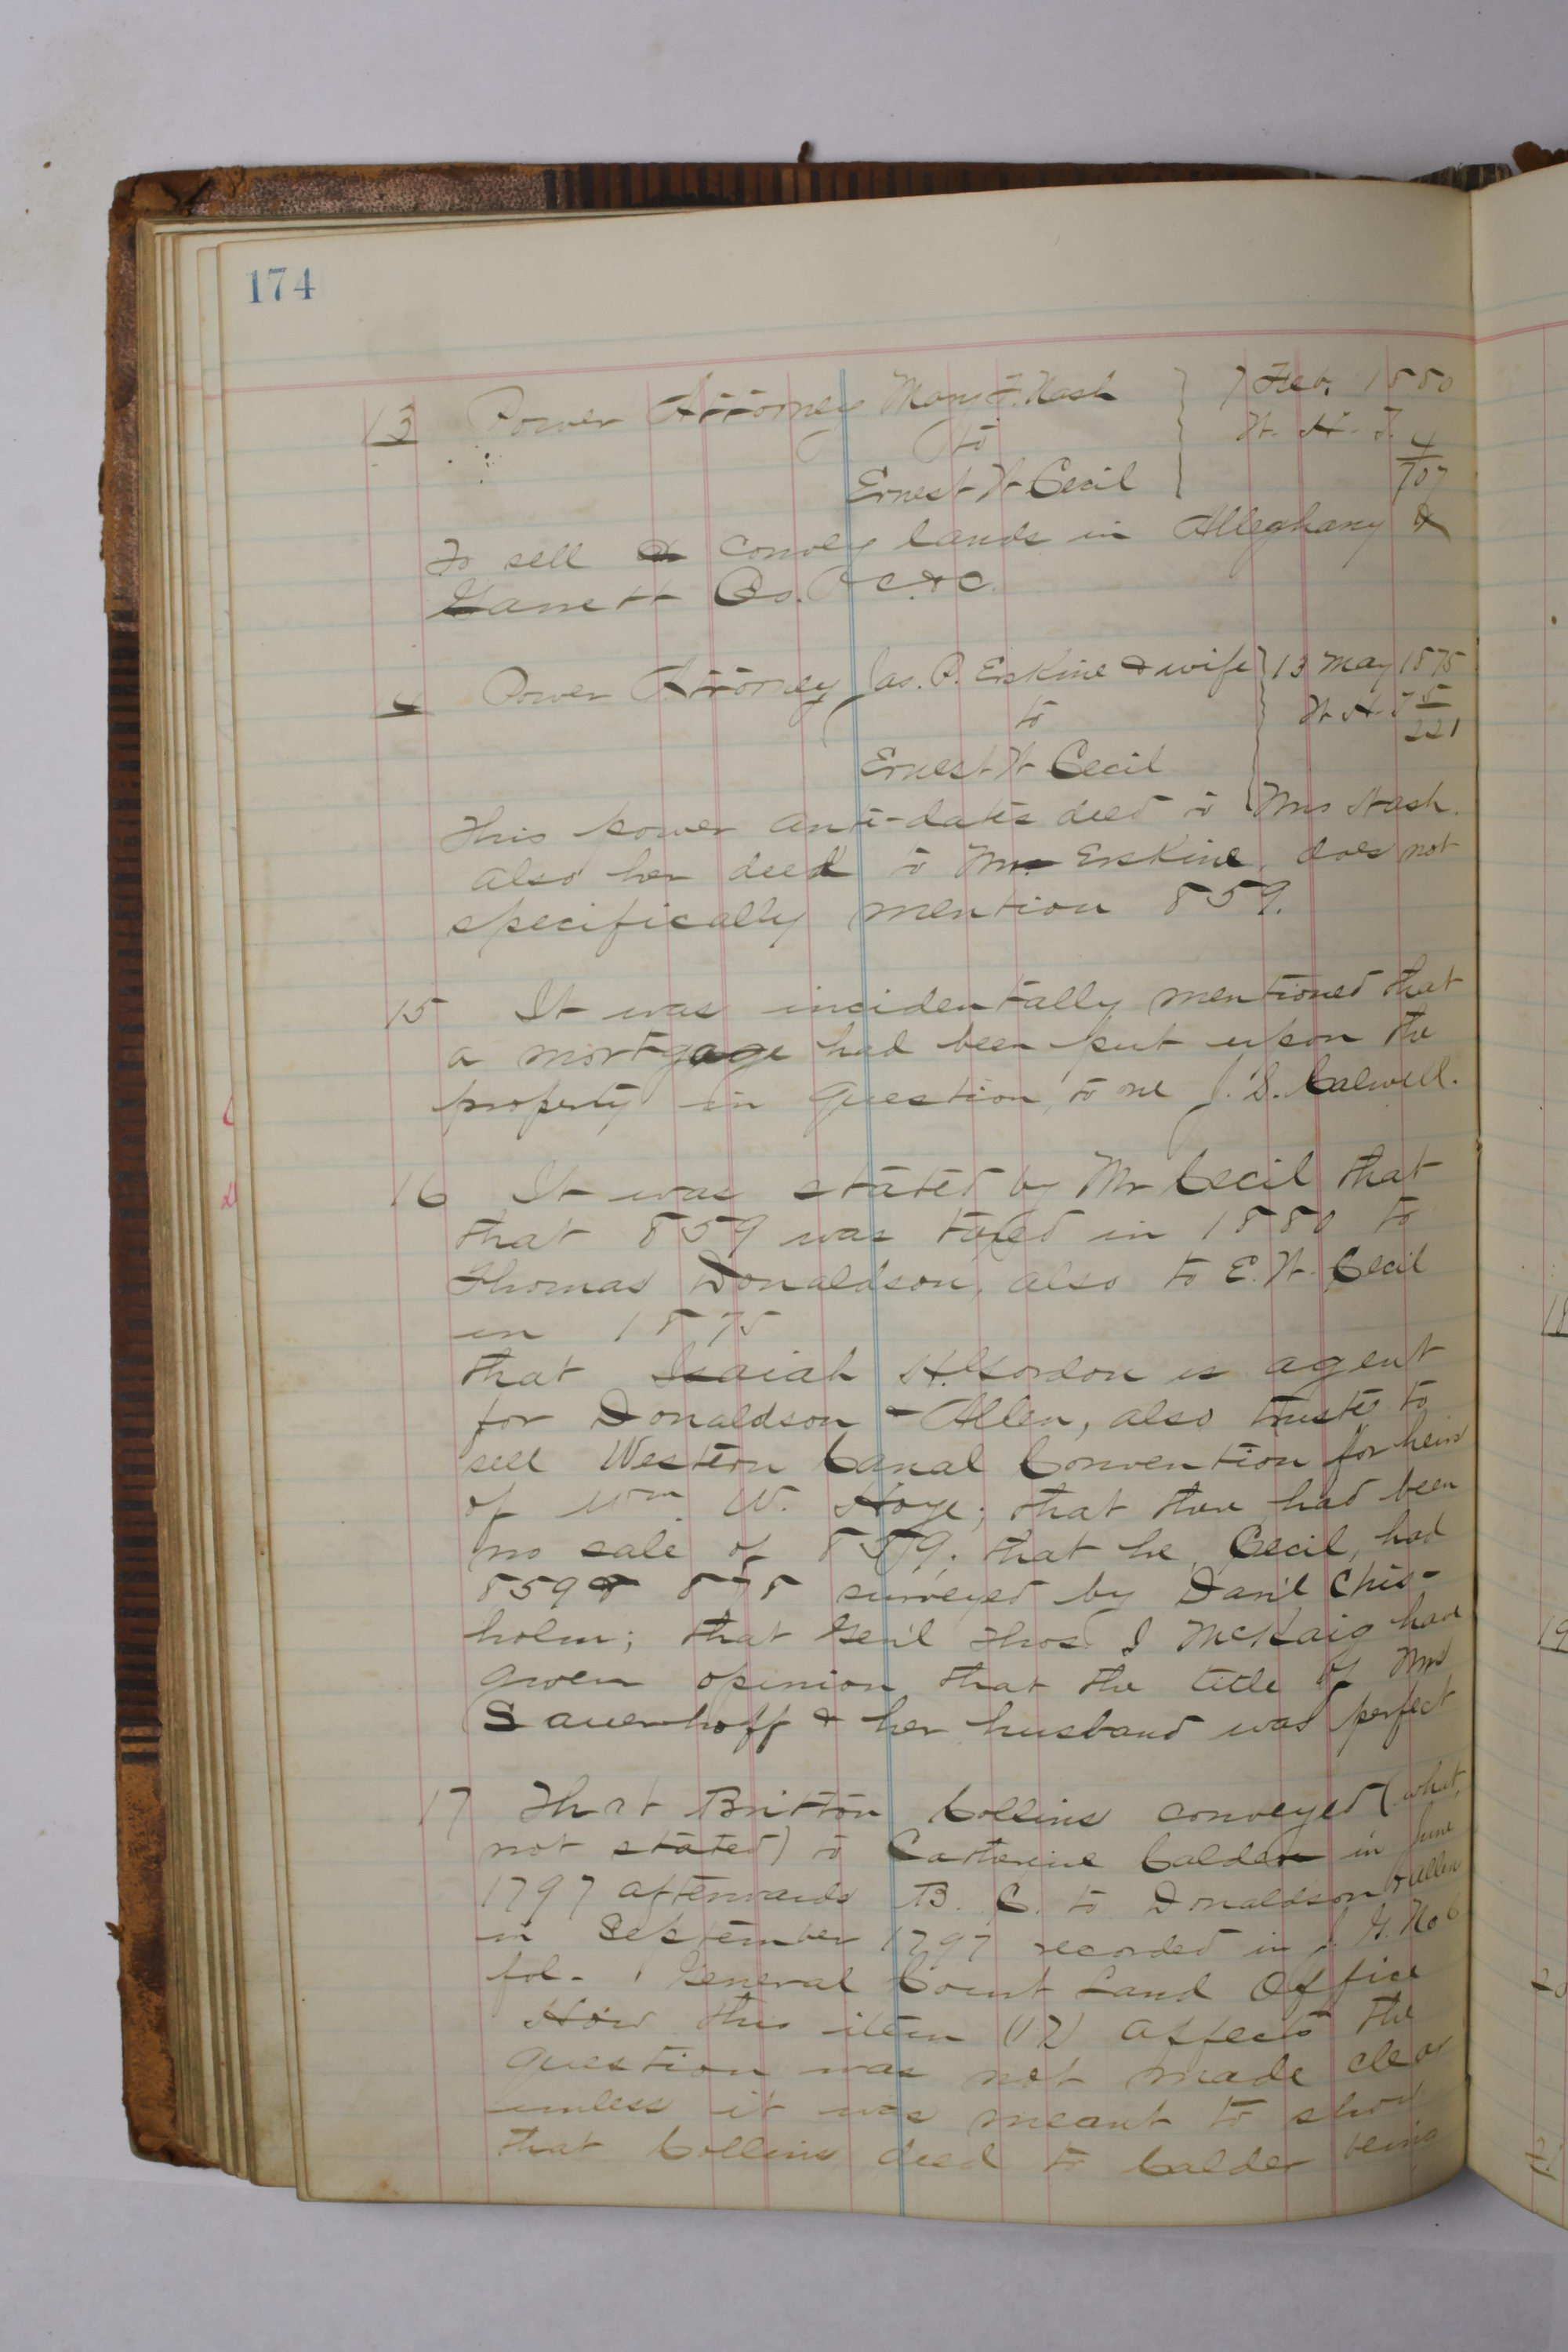 174
13 Power Attorney Mary F. Nash } 7 Feb. 1880
to W. H. T. 4/707
Ernest W Cecil
To sell & convey lands in Alleghany &
Garrett Cos. &c. &c.
4 Power Attorney Jas. P. Erskine & wife } 13 May 1875
to W. H. T 5/221
Ernest W Cecil
This power ante-dates deed to Mrs Nash.
also her deed to Mrs. Erskine, does not
specifically mention 859.
15 It was incidentally mentioned that
a mortgage had been put upon the
property in question, to me J. S. Calwell.
16 It was stated by Mr Cecil that
that 859 was taxed in 1880 to
Thomas Donaldson, also to E. W. Cecil
in 1875
that Isaiah H. Gordon is agent
for Donaldson & Allen, also trustee to
sell Western Canal Convention for heirs
of Wm. W. Hoye; that there had been
no sale of 859; that he, Cecil, had
859 & 878 surveyed by Dan'l Chis-
holm; that Gen'l Thos. J McKaig had
given opinion that the title of Mrs
Sauerhoff & her husband was perfect
17 That Britton Collins conveyed (what,
not stated) to Catherine Calder in June
1797 afterwards B. C. to Donaldson & Allen
in September 1797 recorded in J. G. No 6
fol. 1 General Court Land Office
How this item (17) affects the
question was not made clear
unless it was meant to show
that Collins deed to Calder being
18
19
20
21